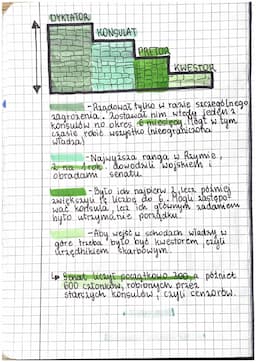 DYKTATOR
KONSULAT
PRETOR
KWESTOR
- Rządował tylko w razie szczególnego
zagrożenia. Zostawał nim wtedy jeden z
konsulów na okres 6 miesięcy. Mógł w tym
czasie robić wszystko (nieograniczona
władza)
- Najwyższa ranga w Rzymie,
2 na 1 rok. dowodzili wojskiem i
obradami senatu.
- Było ich najpierw 2, lecz później
zwiększyli tę liczbę do 6. Mogli zastępo-
wać konsula, lecz ich głównym zadaniem
było utrzymanie porządku.
- Aby wejść w schodach władzy w
górę trzeba było być kwestorem, czyli
urzędnikiem skarbowym.
Senat liczył początkowo 300, a później
600 członków, robionych przez
starczych konsulów, czyli cenzorów.